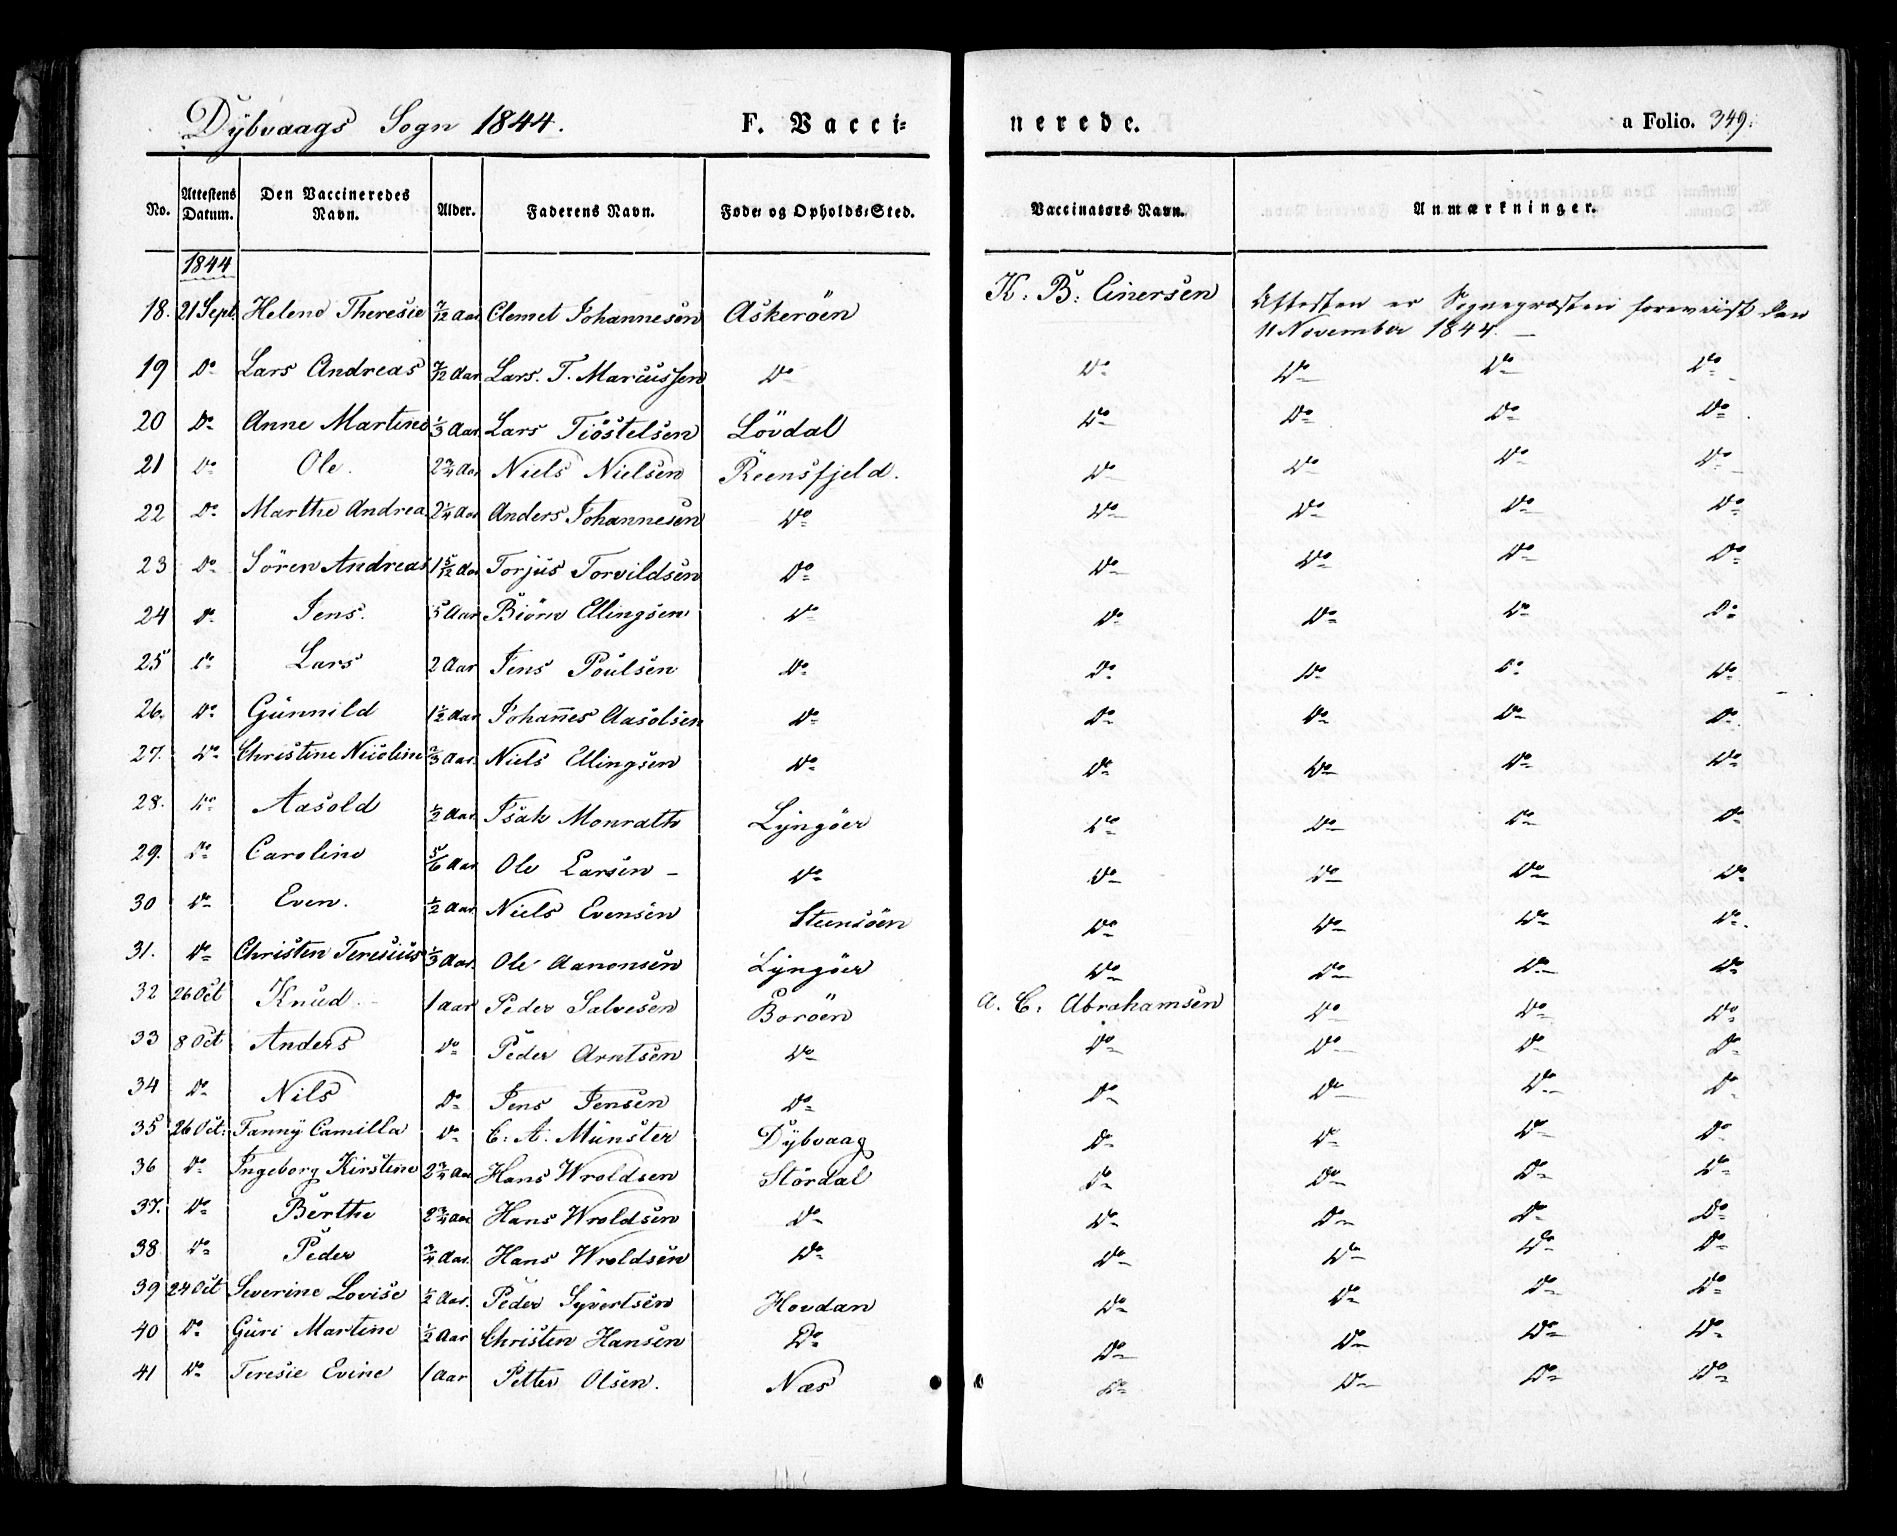 Dÿbvaags Sogn 1844. F. Vacci- nerede. a Folio. 349.
No. Attestens Datum. Den Vaccineredes Navn. Alder. Faderens Navn. Føde- og Opholds-Sted. Vaccinators Navn. Anmærkninger.
1844
18. 21 Sept. Helene Theresie 7/12 Aar Clemet Johannesen Askeröen K. B. Einersen Attesten er Sognepræsten foreviist den
11 November 1844. —
19 Do Lars Andreas 7/12 Aar Lars. T. Marcussen Do Do Do Do Do
20 Do Anne Martine 1/3 Aar Lars Tiöstelsen Lövdal Do Do Do Do
21 Do Ole. 2 3/4 Aar Niels Nielsen Reensfjeld. Do Do Do Do
22 Do Marthe Andrea 2 1/4 Aar Anders Johannesen Do Do Do Do Do
23 Do Sören Andreas 1 5/12 Aar Torjus Torvildsen Do Do Do Do Do
24 Do Jens. 5 Aar Biörn Ellingsen Do Do Do Do Do
25 Do Lars 2 Aar Jens Poulsen Do Do Do Do Do
26. Do Gunnild 1 1/2 Aar Johan̄es Aasolsen Do Do Do Do Do
27. Do Christine Nicoline 2/3 Aar. Niels Ellingsen Do Do Do Do Do
28. Do Aasold 1/2 Aar Isak Monrath Lÿngöer Do Do Do Do
29. Do Caroline 5/6 Aar Ole Larsen — Do Do Do Do Do
30 Do Even. 1/2 Aar Niels Evensen Steensöen Do Do Do Do
31. Do Christen Teresius 1/3 Aar. Ole Aanonsen Lÿngöer Do Do Do Do
32 26 Oct Knud. 1 Aar Peder Salvesen Boröen A. C. Abrahamsen Do Do Do
33 8 Oct Anders Do Peder Arntsen Do Do Do Do Do
34 Do Nils Do Jens Jensen Do Do Do Do Do
35 26 Oct. Fannÿ Camilla Do C. A. Münster Dÿbvaag Do Do Do Do
36 Do Ingeborg Kirstine 2 3/4 Aar Hans Wroldsen Stördal Do Do Do Do
37. Do Berthe 2 3/4 Aar Hans Wroldsen Do Do Do Do Do
38 Do Peder 3/4 Aar. Hans Wroldsen Do Do Do Do Do
39 24 Oct Severine Lovise 1/2 Aar. Peder Sÿvertsen Hovdan Do Do Do Do
40 Do Guri Martine 1/2 Aar Christen Hansen Do Do Do Do Do
41 Do Teresie Evine 1 Aar Petter Olsen. Næs Do Do Do Do